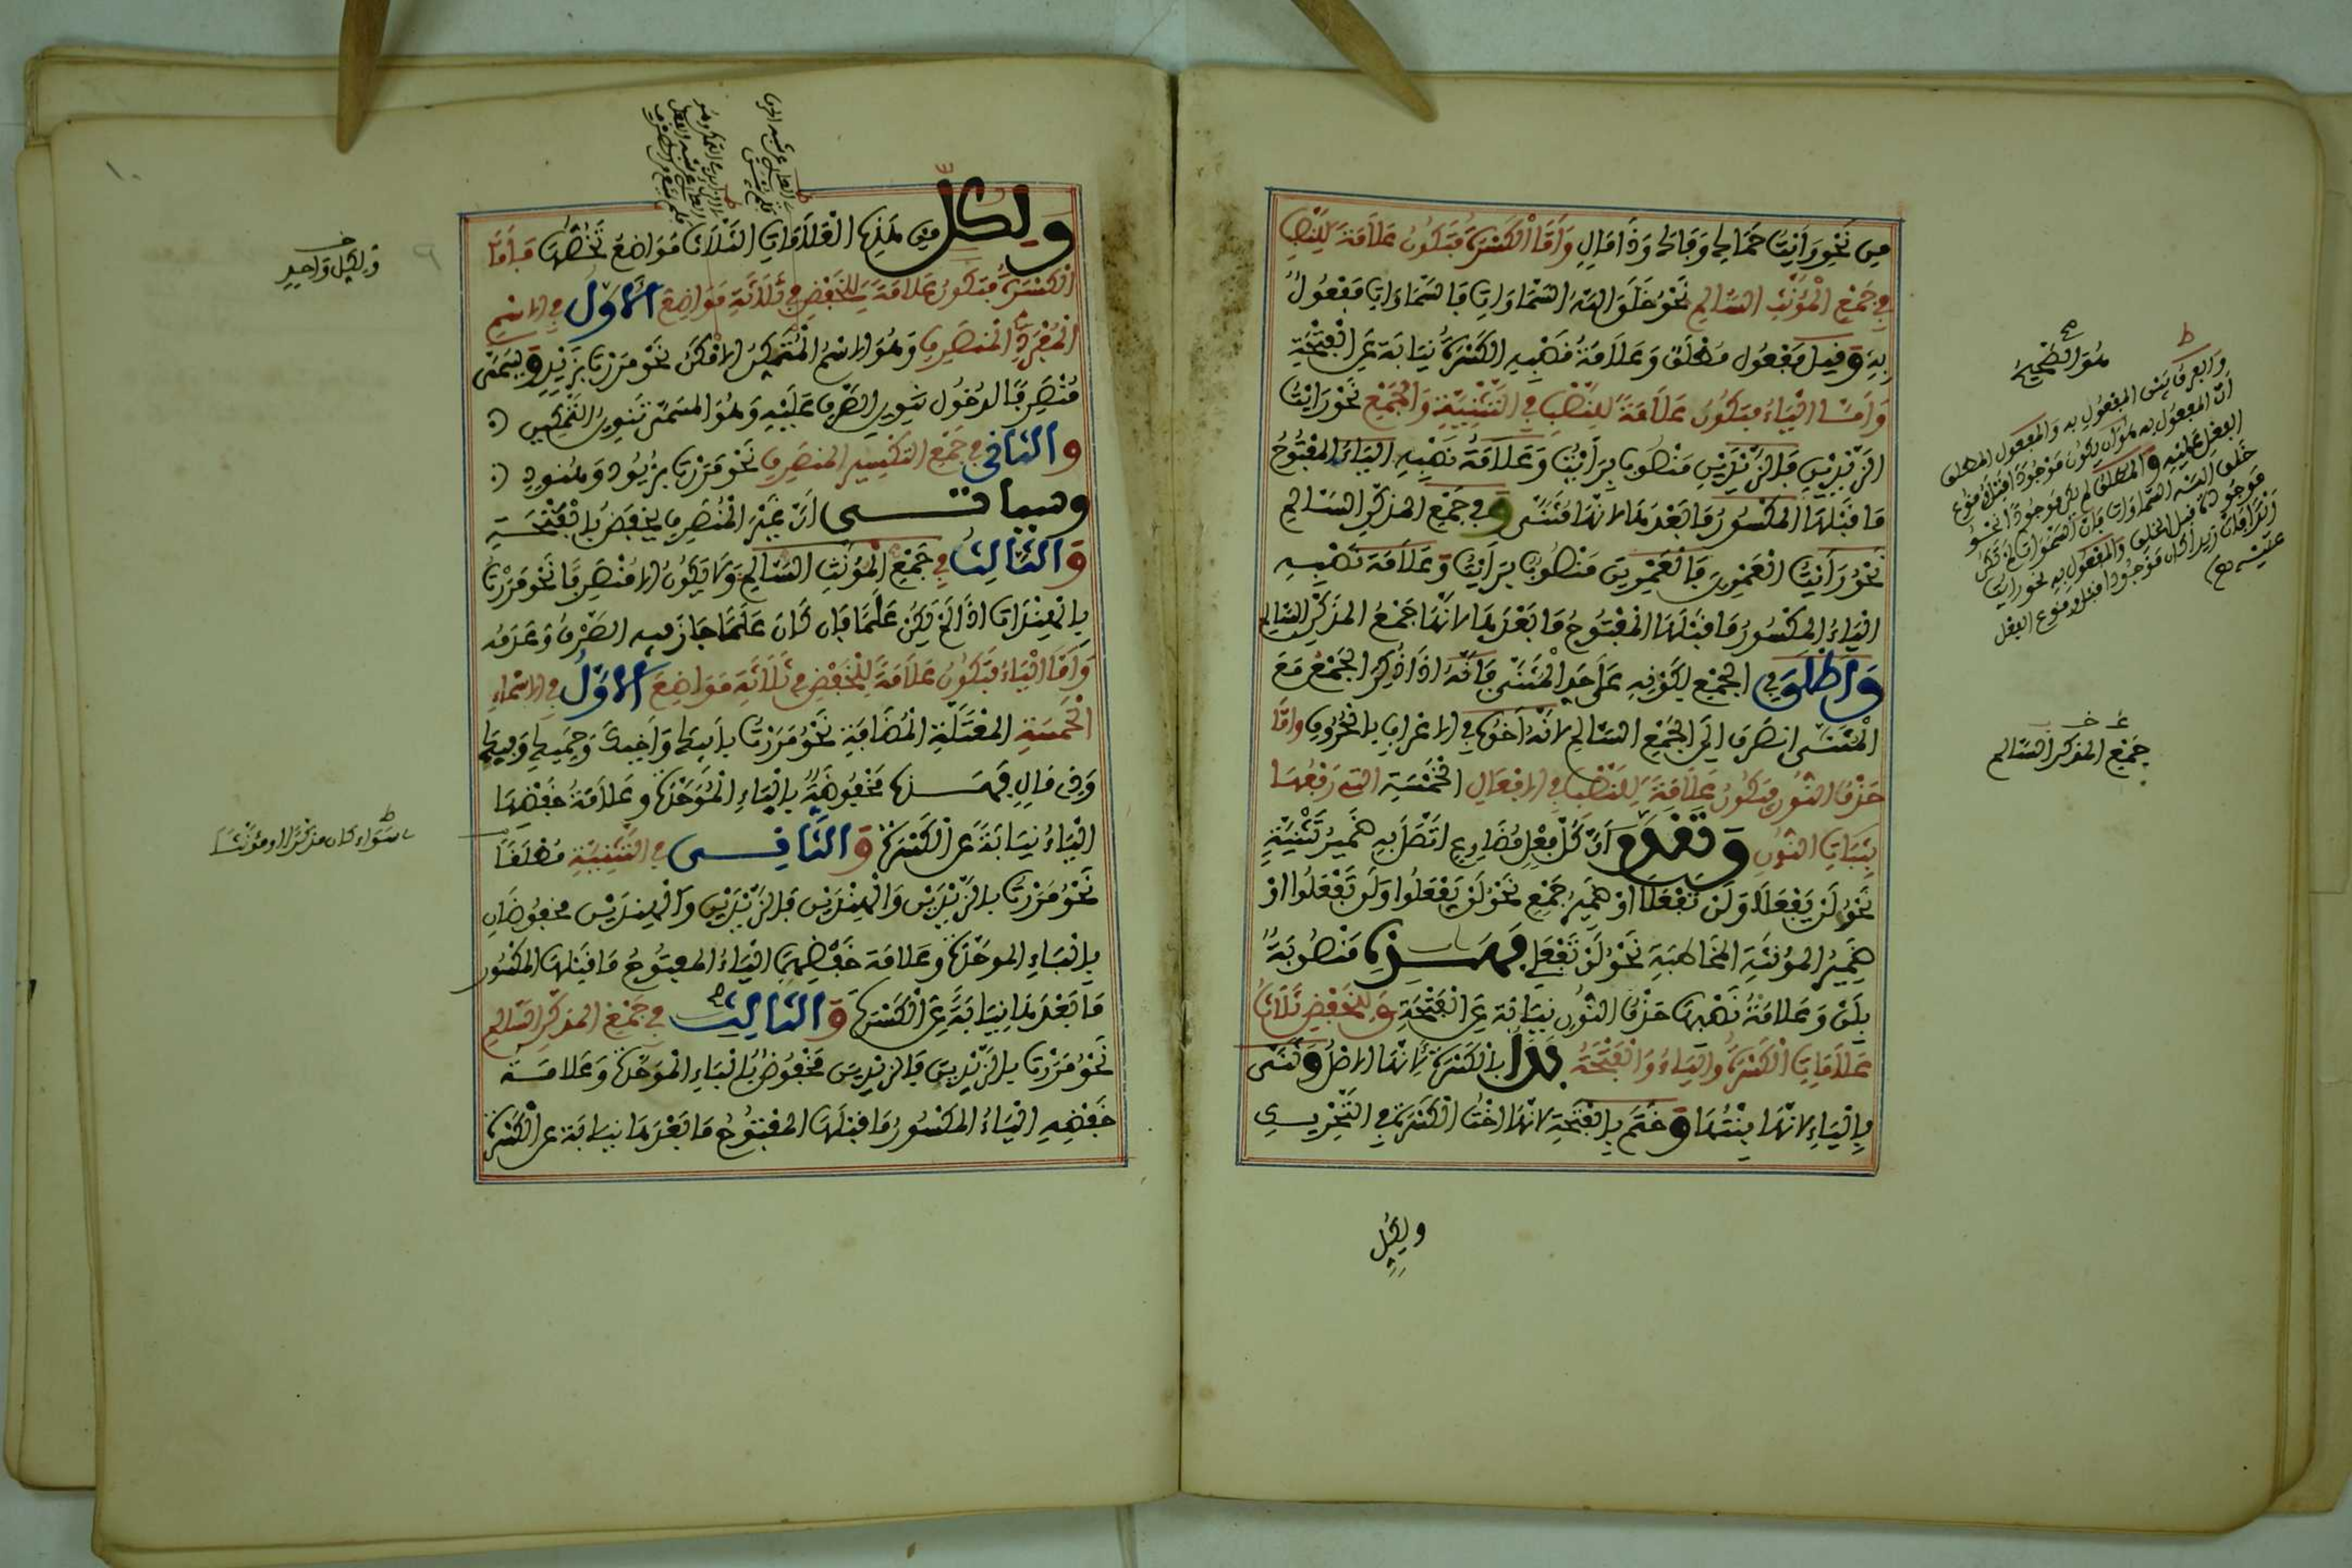 من نحو رأيت حماك وفاك وذا مال وأما الكسرة فتكون علامة للنصب
في جمع المؤنث السالم نحو خلق الله السماوات فالسماوات مفعول
به وقيل مفعول مطلق وعلامة نصبه الكسرة نيابة عن الفتحة
وأما الياء فتكون علامة للنصب في التثنية والجمع نحو رأيت
الزيدين فالزيدين منصوب برأيت وعلامة نصبه الياء المفتوح
ما قبلها المكسور ما بعدها لأنها مثنى وفي جمع المذكر السالم
نحو رأيت العمرين فالعمرين منصوب برأيت وعلامة نصبه
الياء المكسور ما قبلها المفتوح ما بعدها لأنها جمع المذكر السالم
وأطلق في الجمع لكونه على حد المثنى فإنه إذا ذكر الجمع مع
المثنى انصرف إلى الجمع السالم لأنه أخوه في الإعراب بالحروف وأما
حذف النون فتكون علامة للنصب في الأفعال الخمسة التي رفعها
بثبات النون وتقدم أن كل فعل مضارع اتصل به ضمير تثنية
نحو لن يفعلا ولن تفعلا أو ضمير جمع نحو لن يفعلوا ولن تفعلوا أو
ضمير المؤنثة المخاطبة نحو لن تفعلي فهذه منصوبة
بلن وعلامة نصبها حذف النون نيابة عن الفتحة وللخفض ثلاث
علامات الكسرة والياء والفتحة بدأ بالكسرة لأنها الأصل وثنى
بالياء لأنها بنتها وختم بالفتحة لأنها أخت الكسرة في التحريك
ولكل
هو الصحيح
والفرق بين المفعول به والمفعول المطلق
أن المفعول به هو أن يكون موجودا قبل وقوع
الفعل عليه والمطلق لم يكن موجودا نحو
خلق الله السماوات فإن السموات لم تكن
موجودة قبل الخلق والمفعول به نحو رأيت
زيدا فإن زيدا كان موجودا قبل وقوع الفعل
عليه
جمع المذكر السالم
ولكل من هذه العلامات الثلاث مواضع تخصها فأما
الكسرة فتكون علامة للخفض في ثلاثة مواضع الأول في الاسم
المفرد المنصرف وهو الاسم المتمكن الأمكن نحو مررت بزيد ويسمى
منصرفا لدخول تنوين الصرف عليه وهو المسمى تنوين التمكين
والثاني في جمع التكسير المنصرف نحو مررت بزيود وهنود
وسيأتي أن غير المنصرف يخفض بالفتحة
والثالث في جمع المؤنث السالم ولا يكون إلا منصرفا نحو مررت
بالهندات إذا لم يكن علما فإن كان علما جاز فيه الصرف وعدمه
وأما الياء فتكون علامة للخفض في ثلاثة مواضع الأول في الأسماء
الخمسة المعتلة المضافة نحو مررت بأبيك وأخيك وحميك وفيك
وذي مال فهذه مخفوضة بالياء الموحدة وعلامة خفضها
الياء نيابة عن الكسرة والثاني في التثنية مطلقا
نحو مررت بالزيدين والهندين فالزيدين والهندين مخفوضان
بالباء الموحدة وعلامة خفضهما الياء المفتوح ما قبلها المكسور
ما بعدها نيابة عن الكسرة والثالث في جمع المذكر السالم
نحو مررت بالزيدين فالزيدين مخفوض بالباء الموحدة وعلامة
خفضه الياء المكسور ما قبلها المفتوح ما بعدها نيابة عن الكسرة
ولكل واحد
سواء كان مذكرا أو مؤنثا